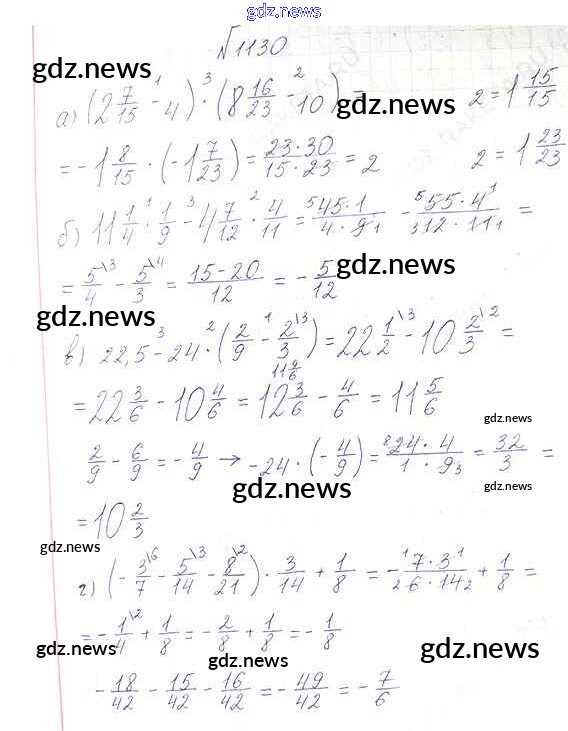 gdz.news
№1130
gdz.news
gdz.news
а) (2 7/15 - 4) · (8 16/23 - 10) =
2 = 1 15/15
= -1 8/15 · (-1 7/23) = 23·30/15·23 = 2
2 = 1 23/23
gdz.news
б) 11 1/4 · 1/9 - 4 7/12 · 4/11 = 45·1/4·9 - 55·4/12·11 =
gdz.news
= 5/4 - 5/3 = 15-20/12 = -5/12
gdz.news
gdz.news
в) 22,5 - 24 · (2/9 - 2/3) = 22 1/2 - 10 2/3 =
11 9/6
= 22 3/6 - 10 4/6 = 12 3/6 - 4/6 = 11 5/6
gdz.news
2/9 - 6/9 = -4/9 → -24 · (-4/9) = 24·4/1·9 = 32/3 =
gdz.news
gdz.news
= 10 2/3
gdz.news
г) (-3/7 - 5/14 - 8/21) · 3/14 + 1/8 = -7·3/6·14 + 1/8 =
= -1/4 + 1/8 = -2/8 + 1/8 = -1/8
gdz.news
gdz.news
gdz.news
-18/42 - 15/42 - 16/42 = -49/42 = -7/6
gdz.news